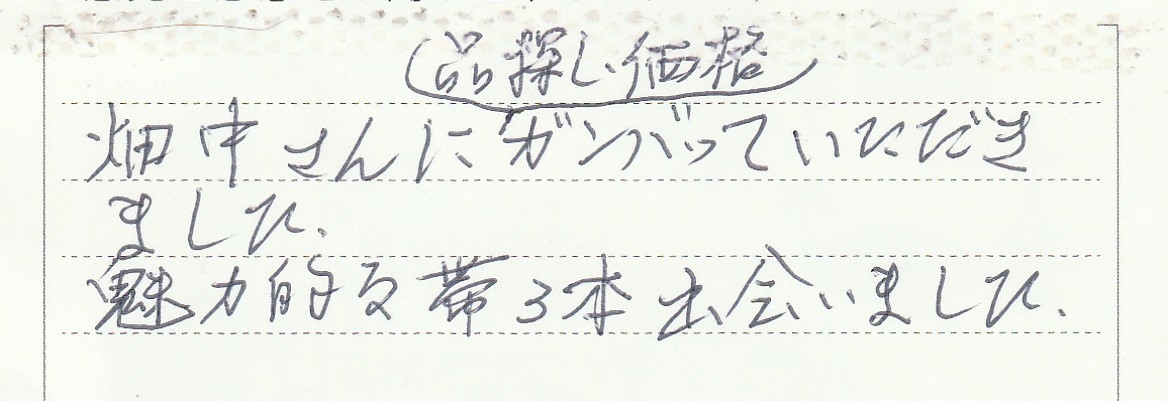 品探し、価格
畑中さんにガンバっていただき
ました.
魅力的な帯3本出会いました.